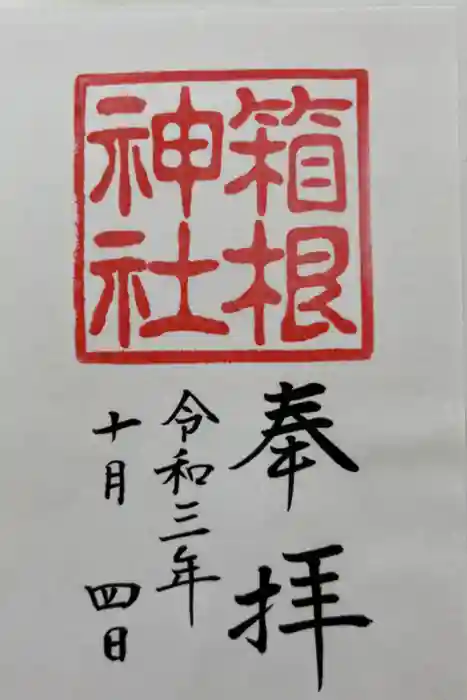 箱根
神社
奉拝
令和三年
十月 四日